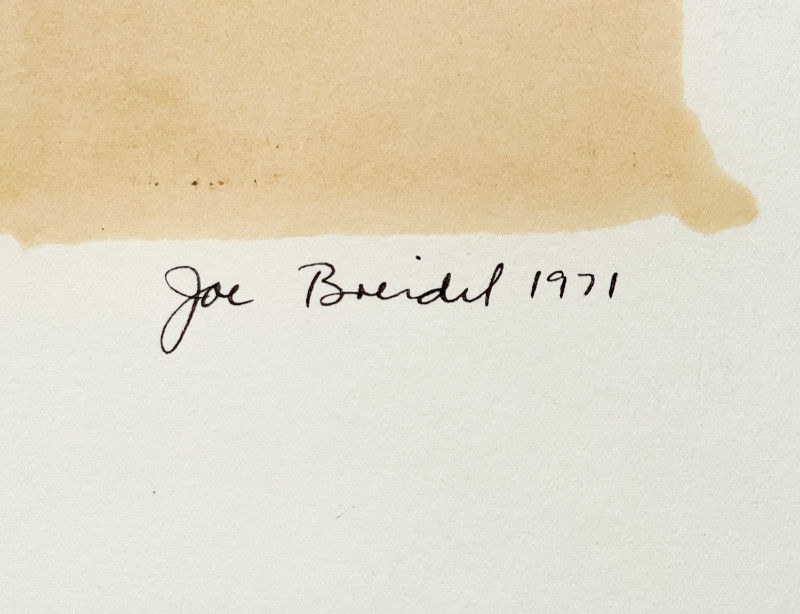 Joe Breidel 1971